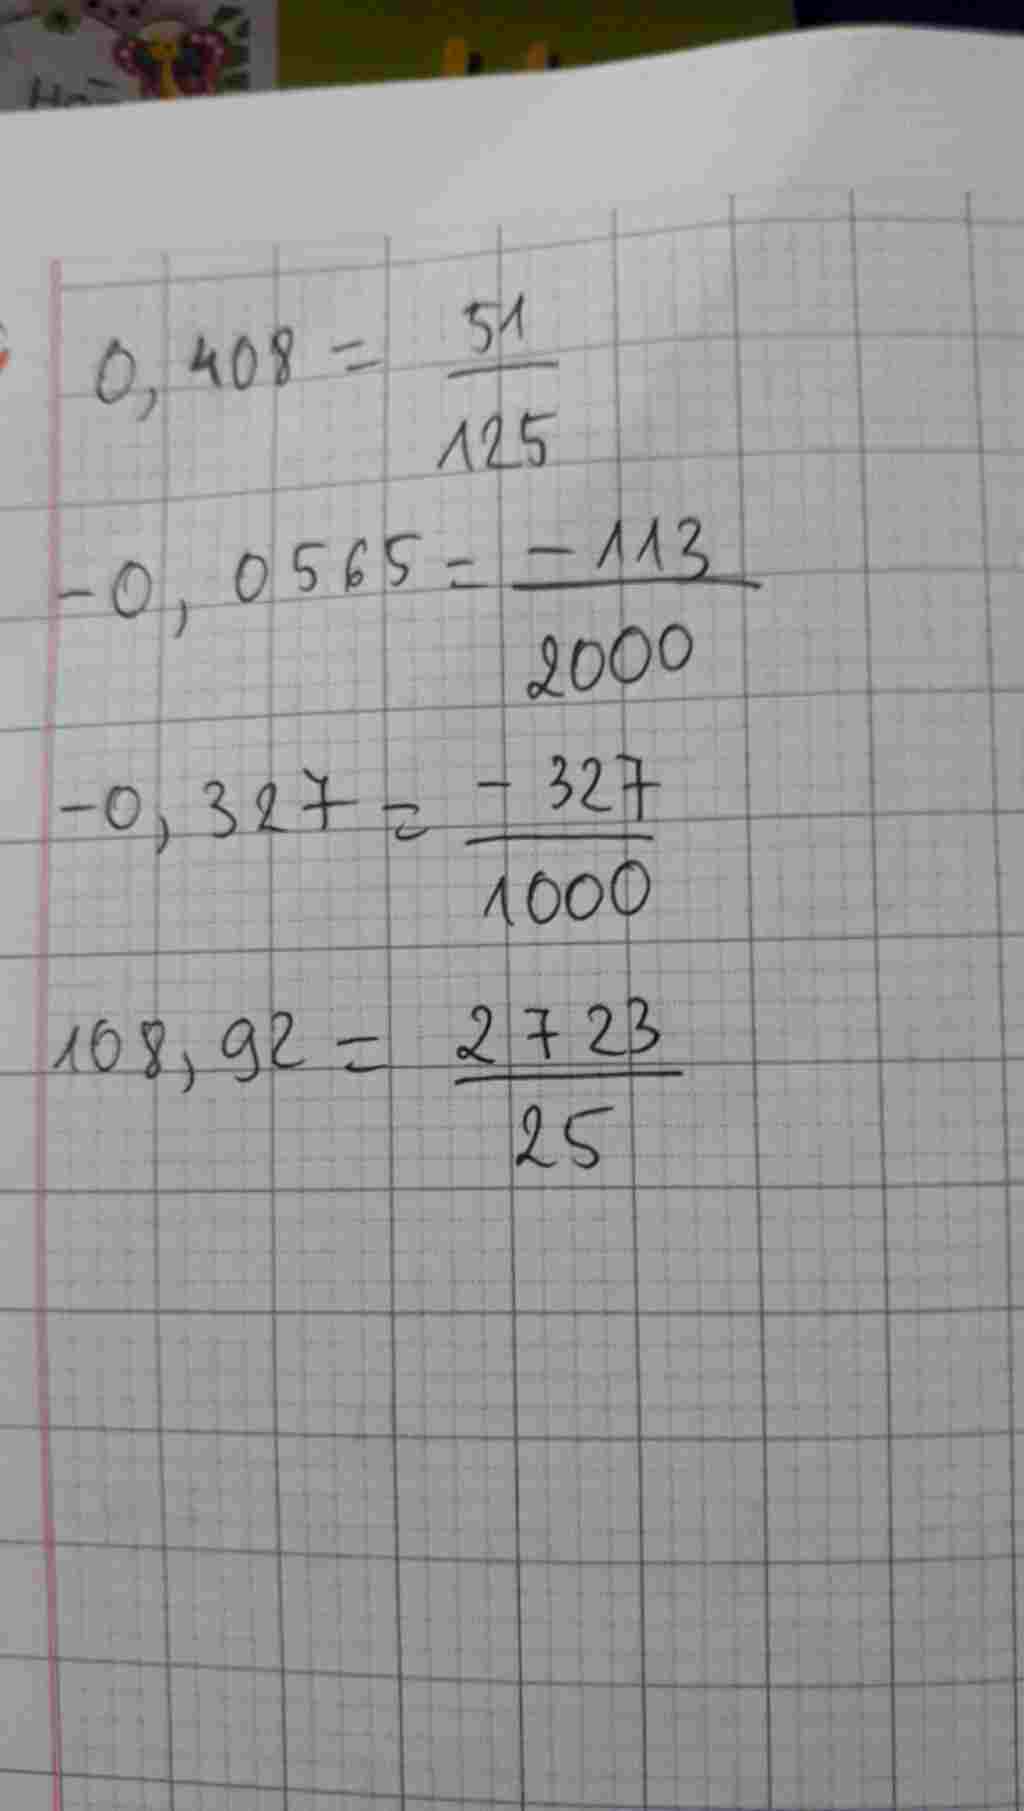 0,408 = 51/125
-0,0565 = -113/2000
-0,327 = -327/1000
108,92 = 2723/25